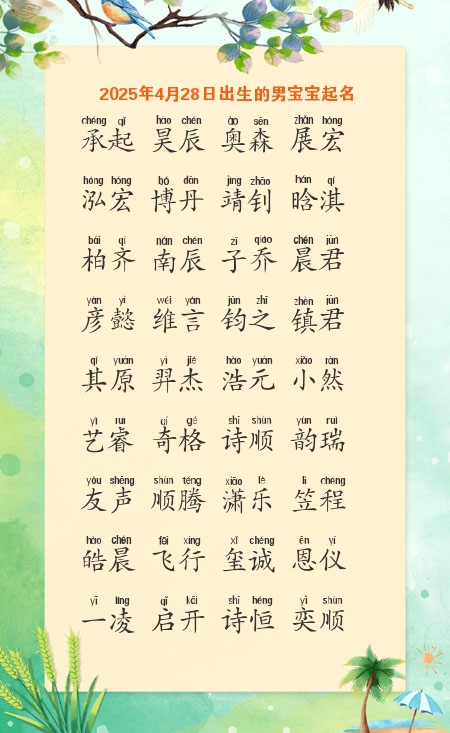 2025年4月28日出生的男宝宝起名
chéng qǐ hào chén ào sēn zhǎn hóng
承起 昊辰 奥森 展宏
hóng hóng bó dān jìng zhāo hán qí
泓宏 博丹 靖钊 晗淇
bǎi qí nán chén zǐ qiáo chén jūn
柏齐 南辰 子乔 晨君
yàn yì wéi yán jūn zhī zhèn jūn
彦懿 维言 钧之 镇君
qí yuán yì jié hào yuán xiǎo rán
其原 羿杰 浩元 小然
yì ruì qí gé shī shùn yùn ruì
艺睿 奇格 诗顺 韵瑞
yǒu shēng shùn téng xiāo lè lì chéng
友声 顺腾 潇乐 笠程
hào chén fēi xíng xǐ chéng ēn yí
皓晨 飞行 玺诚 恩仪
yī líng qǐ kāi shī héng yì shùn
一凌 启开 诗恒 奕顺